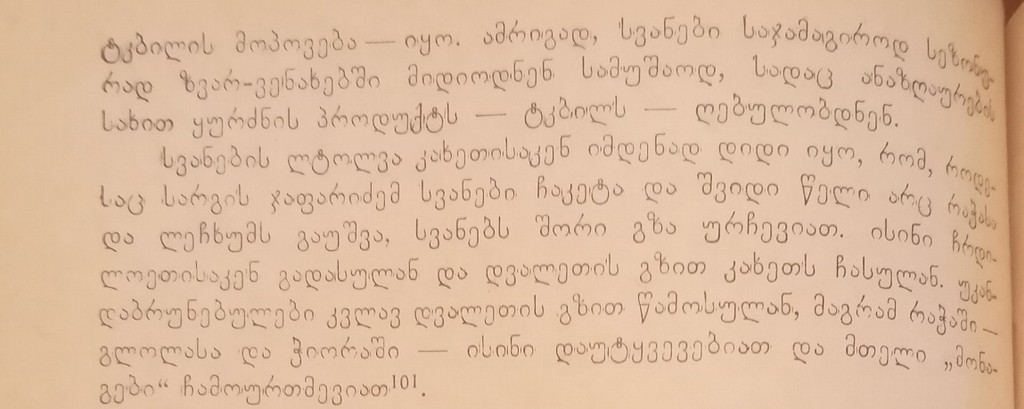 ტკბილის მოპოვება — იყო. ამრიგად, სვანები საჯამაგიროდ სეზონუ-
რად ზვარ-ვენახებში მიდიოდნენ სამუშაოდ, სადაც ანაზღაურების
სახით ყურძნის პროდუქტს — ტკბილს — ღებულობდნენ.
სვანების ლტოლვა კახეთისაკენ იმდენად დიდი იყო, რომ, როდე-
საც სარგის ჯაფარიძემ სვანები ჩაკეტა და შვიდი წელი არც რაჭასა
და ლეჩხუმს გაუშვა, სვანებს შორი გზა ურჩევიათ. ისინი ჩრდი-
ლოეთისაკენ გადასულან და დვალეთის გზით კახეთს ჩასულან. უკან-
დაბრუნებულები კვლავ დვალეთის გზით წამოსულან, მაგრამ რაჭაში —
გლოლასა და ჭიორაში — ისინი დაუტყვევებიათ და მთელი „მონა-
გები“ ჩამოურთმევიათ¹⁰¹.